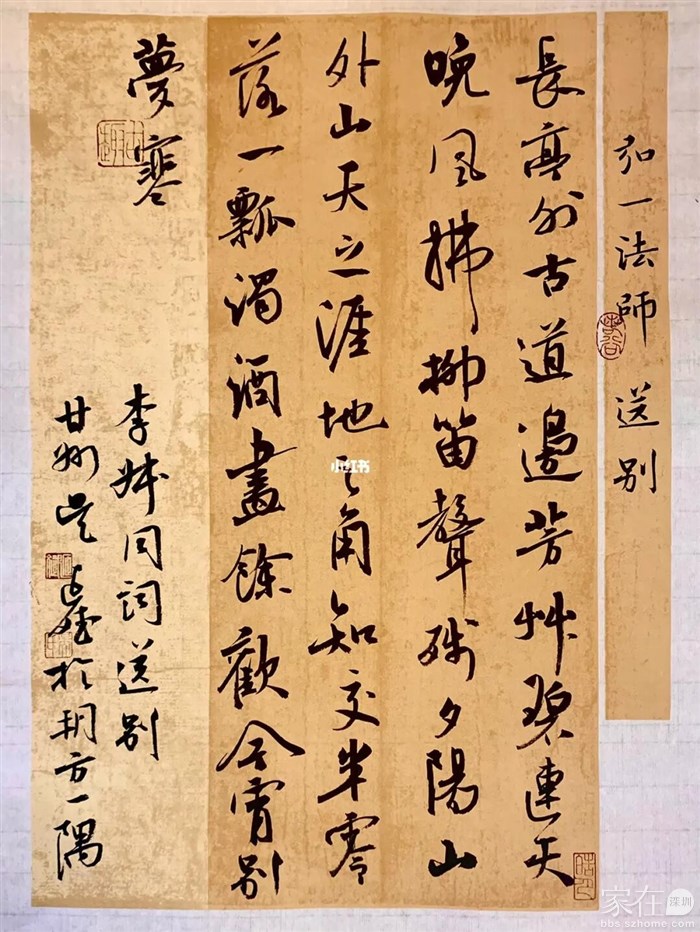 弘一法師 送别
長亭外古道邊芳艸碧連天
晚風拂柳笛聲殘夕陽山
外山天之涯地之角知交半零
落一瓢濁酒盡餘歡今宵别
夢寒
李叔同詞送别
甘州吴於朔方一隅
小红书
家在深圳
bbs.szhome.com